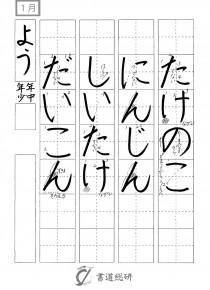 1月
たけのこ
にんじん
しいたけ
だいこん
よう
年少
年中
書道総研